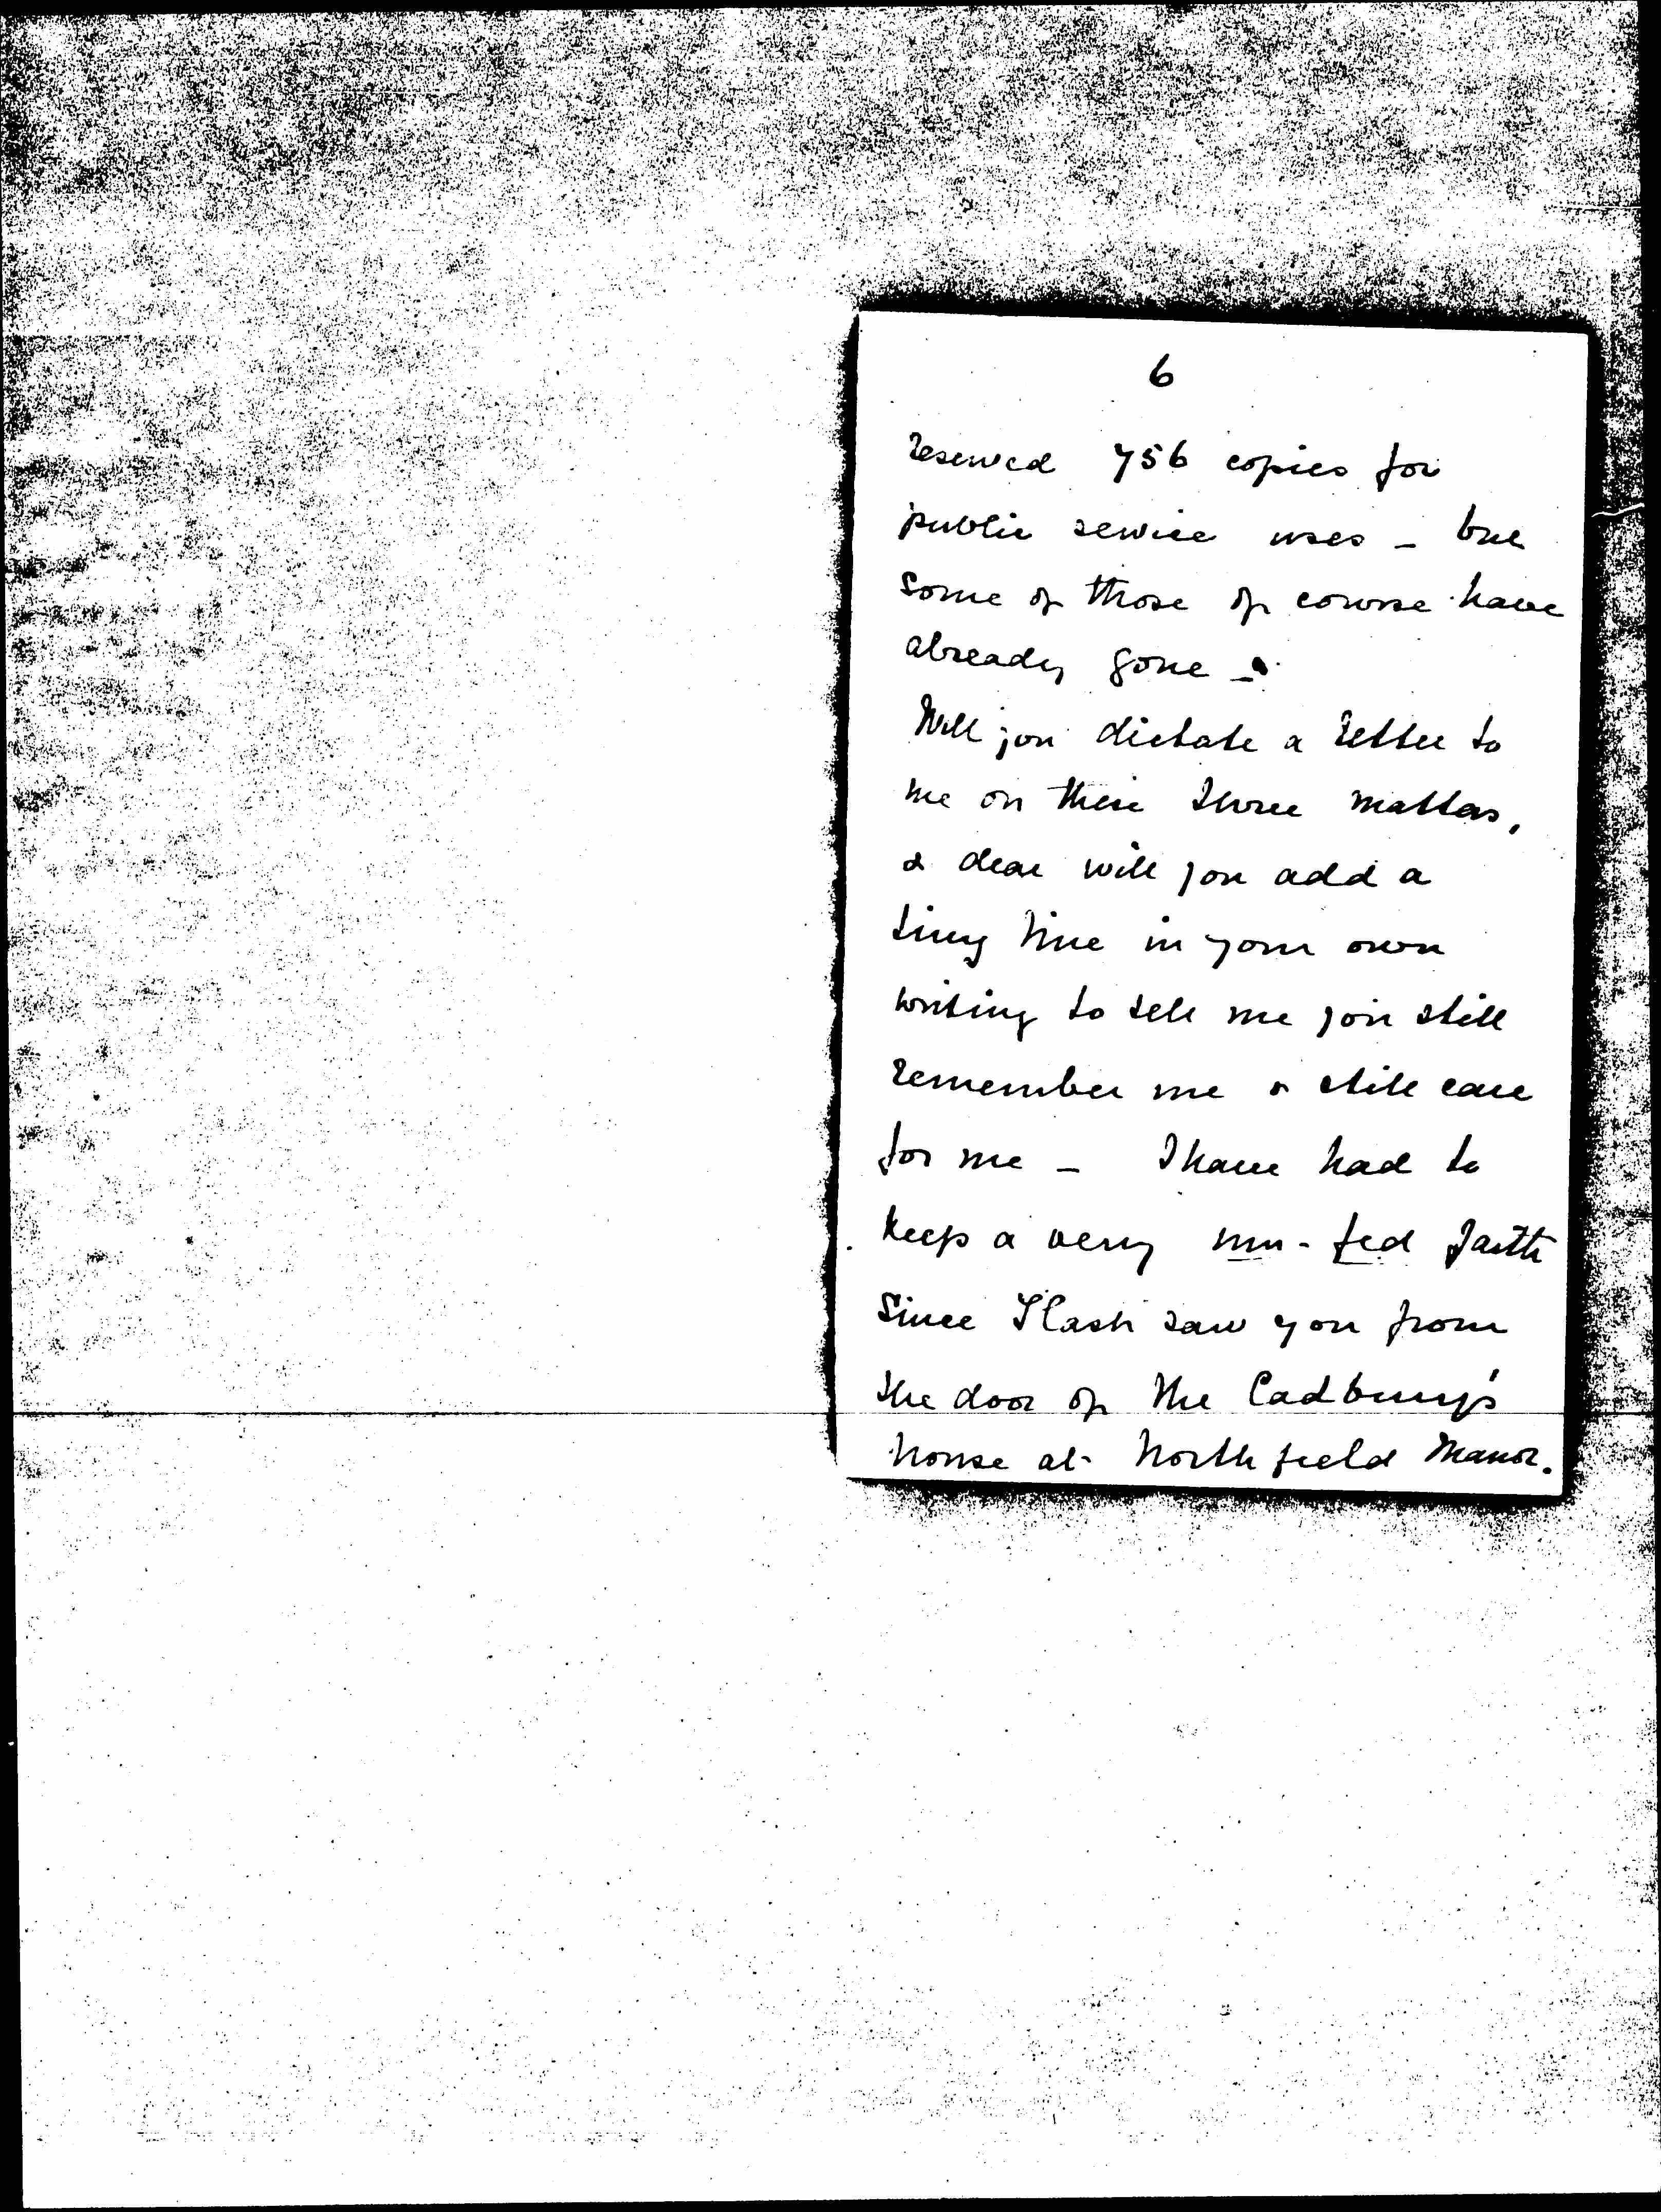 6
reserved 756 copies for
public service uses – but
some of those of course have
already gone –.
Will you dictate a letter to
me on these three matters,
& dear will you add a
tiny line in your own
writing to tell me you still
remember me & still care
for me – I have had to
keep a very un-fed faith
since I last saw you from
the door of the Cadbury's
house at Northfield Manor.